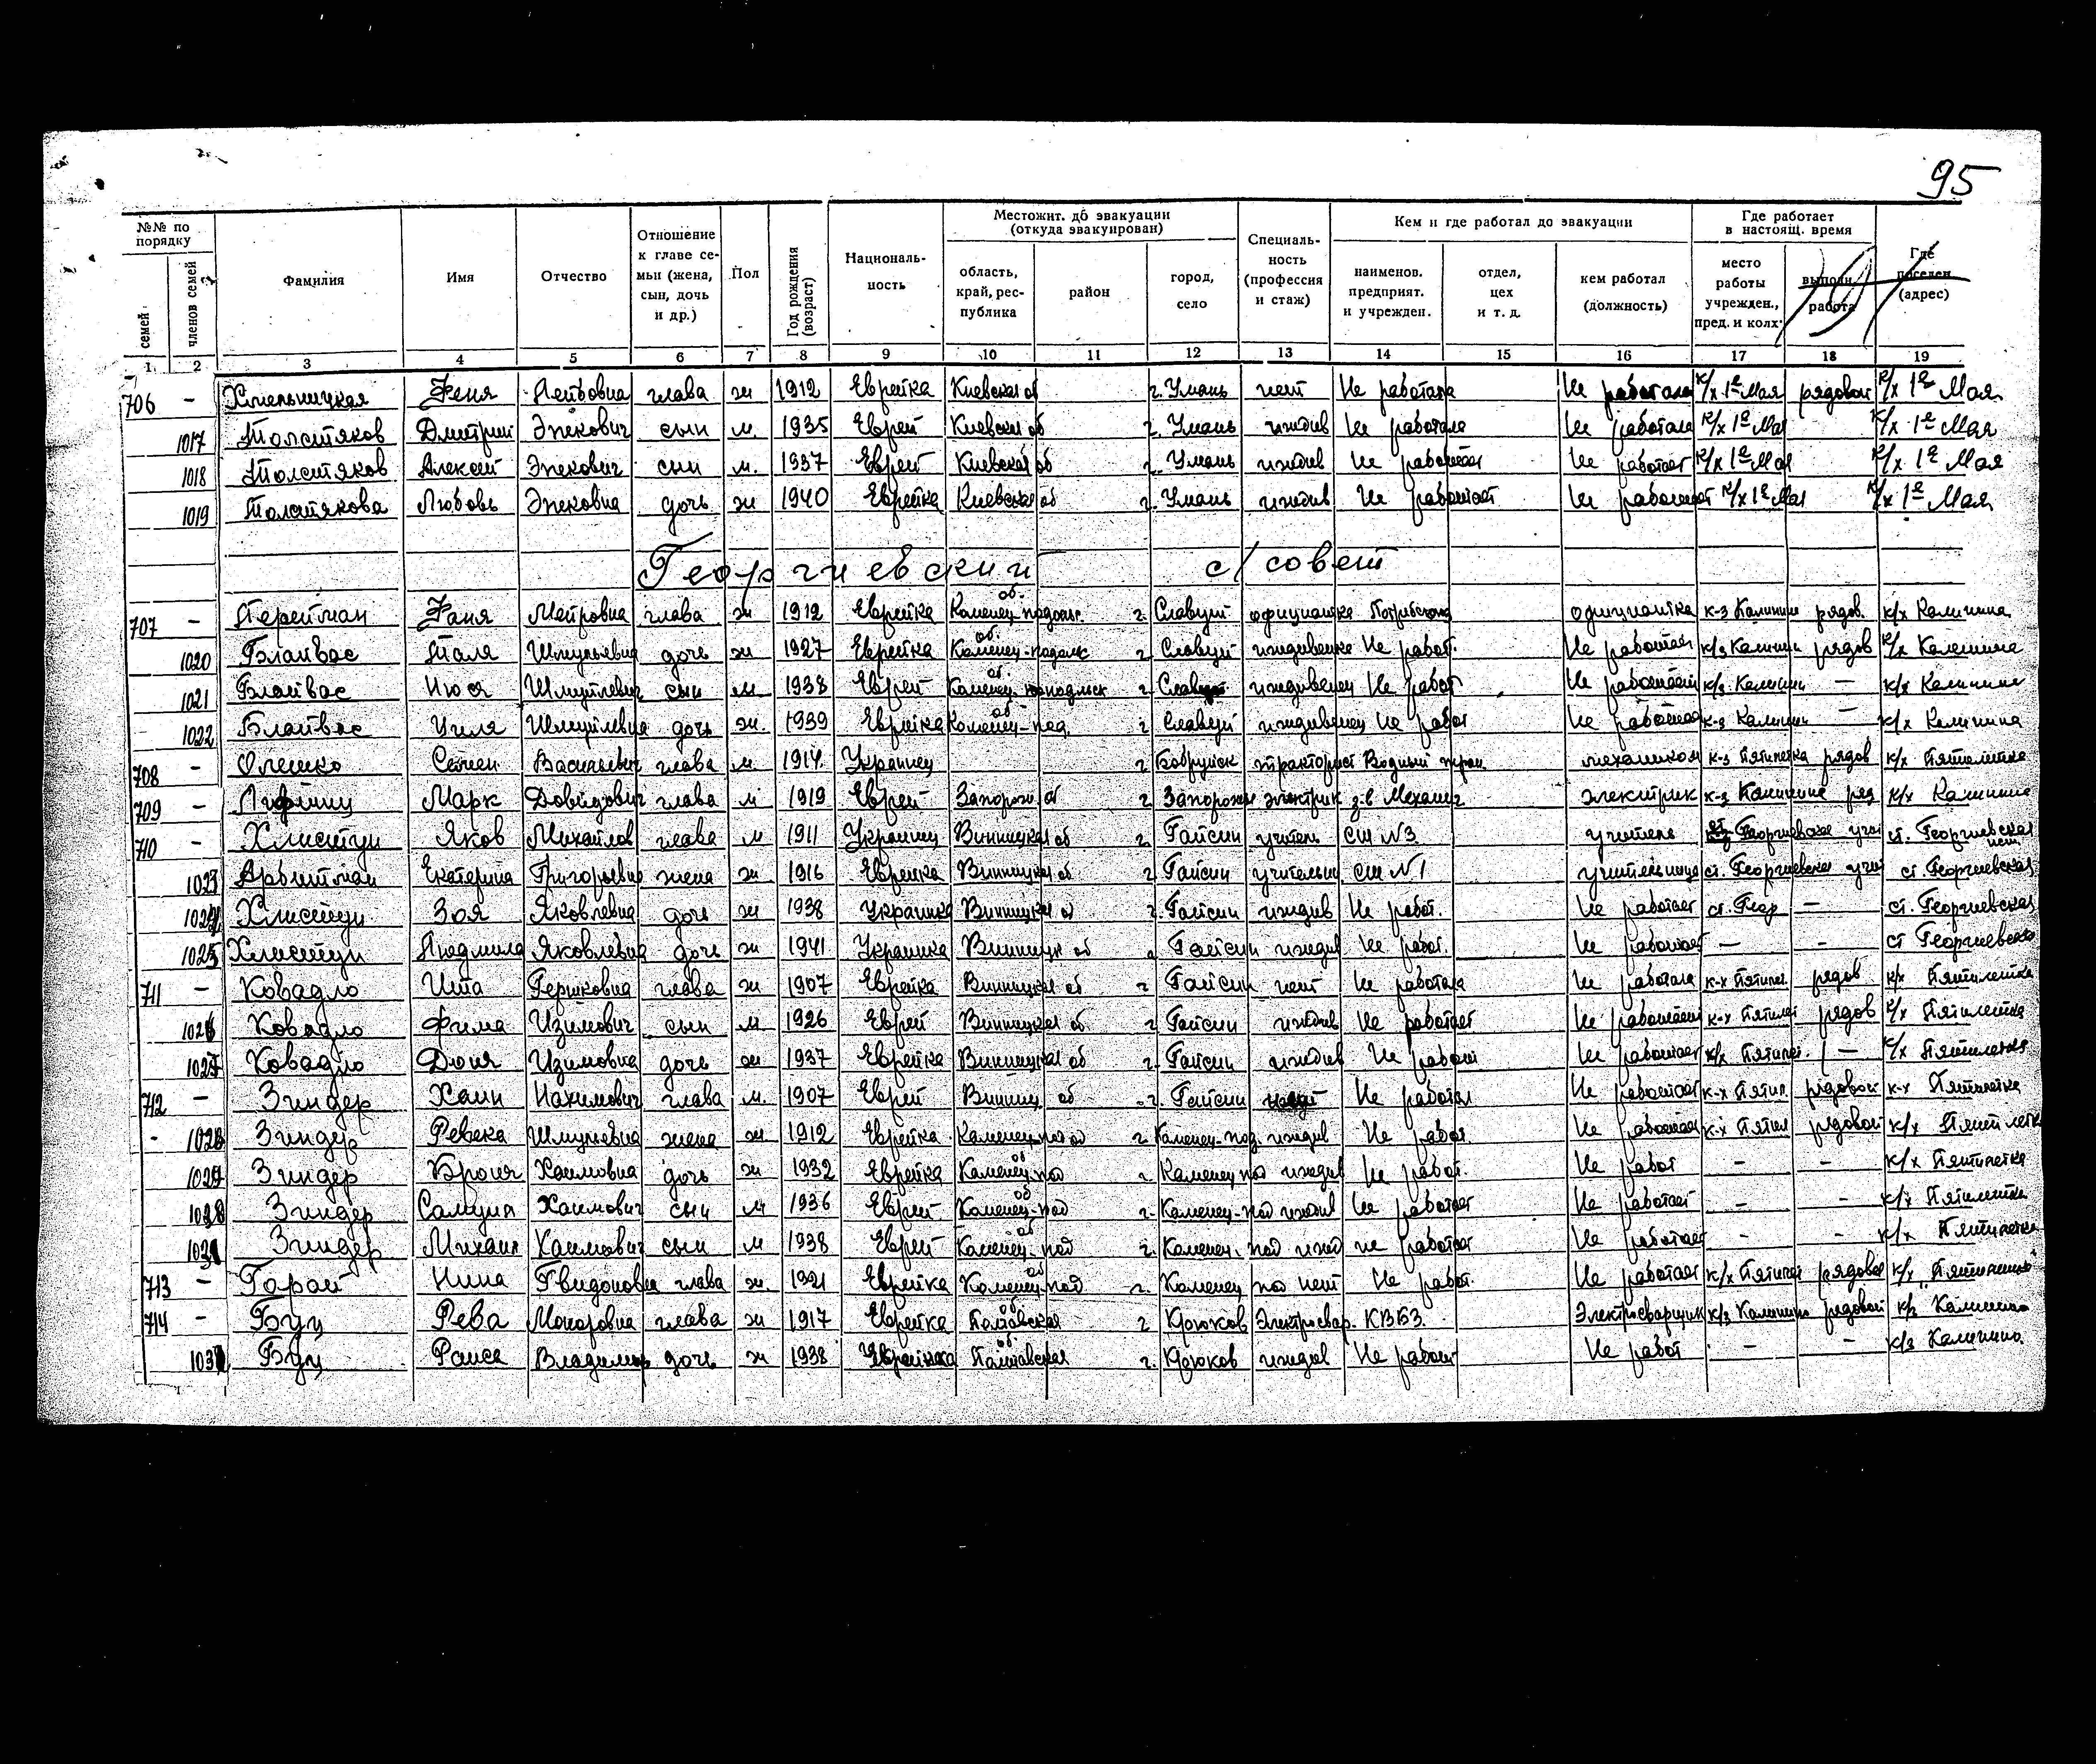 95
№№ по порядку | Фамилия | Имя | Отчество | Отношение к главе семьи (жена, сын, дочь и др.) | Пол | Год рождения (возраст) | Националь-ность | Местожит. до эвакуации (откуда эвакуирован) | Специаль-ность (профессия и стаж) | Кем и где работал до эвакуации | Где работает в настоящ. время | Где поселен (адрес)
семей | членов семей | область, край, рес-публика | район | город, село | наименов. предприят. и учрежден. | отдел, цех и т. д. | кем работал (должность) | место работы учрежден., пред. и колх. | выполн. работа
1 2 3 4 5 6 7 8 9 10 11 12 13 14 15 16 17 18 19
706 - Хмельницкая Феня глава ж 1912 Еврейка Киевская об г. Умань нет Не работала Не работала к/х 1е Мая рядовой к/х 1е Мая
1017 Толстяков Дмитрий сын м. 1935 Еврей Киевская об г. Умань иждив Не работала Не работала к/х 1е Мая к/х 1е Мая
1018 Толстяков Алексей сын м. 1937 Еврей Киевская об г. Умань иждив Не работает Не работает к/х 1е Мая к/х 1е Мая
1019 Толстякова Любовь дочь ж 1940 Еврейка Киевская об г. Умань иждив Не работает Не работает к/х 1е Мая к/х 1е Мая
Георгиевский с/совет
707 - Перейман Фаня глава ж 1912 Еврейка Каменец-подольс. об. г. Славут официантка официантка к-з Калинин рядов. к/х Калинина
1020 Блайвас Таля Шмульевна дочь ж 1927 Еврейка Каменец-подолс об. г Славут иждивенка Не работ. Не работает к/з Калинин рядов к/х Калинина
1021 Блайвас Шмулевич сын м 1938 Еврей об. г иждивенец Не работ Не работает к/з Калинин — к/х Калинина
1022 Блайвас Циля Шмулевна дочь ж. 1939 Еврейка Каменец-под. об г Славут иждивенец Не работ Не работает к-з Калинин — к/х Калинина
708 - Олешко Семен Васильевич глава м. 1914 Украинец г Бобруйск тракторист Водный механиком к-з Пятилетка рядов к/х Пятилетка
709 - Марк Довидович глава м 1919 Еврей Запорож об г Запорожье электрик з-в электрик к-з Калинина ряд к/х Калинина
710 - Хлистун Яков Михайлов глава м 1911 Украинец Винницкая об г Гайсин учитель СШ №3 учитель Георгиевская учи ст. Георгиевская
1023 Арбитман Екатерина Григорьевна жена ж 1916 Еврейка Винницкая об г Гайсин учительн СШ №1 учительница ст. Георгиевская учи ст. Георгиевская
1024 Хлистун Зоя Яковлевна дочь ж 1938 Украинка Винницкая об г. Гайсин иждив Не работ. Не работает ст. Геор — ст. Георгиевская
1025 Хлистун Людмила Яковлевна дочь ж 1941 Украинка Винницк об г Гайсин иждив Не работ. Не работает — - ст Георгиевская
711 - Ковадло Ита Гершковна глава ж 1907 Еврейка Винницкая об г Гайсин нет Не работала Не работала к-х Пятилет рядов к/х Пятилетка
1026 Ковадло Фима Изимович сын м 1926 Еврей Винницкая об г Гайсин иждив Не работает Не работает к-х Пятилет рядов к/х Пятилетка
1027 Ковадло Дюня Изимовна дочь ж 1937 Еврейка Винницкая об г. Гайсин иждив Не работ Не работает к/х Пятилет. — к/х Пятилетка
712 - Зиндер Хаим Нахимович глава м. 1907 Еврей Винниц об г. Гайсин Не работал Не работает к-х Пятил рядовой к-х Пятилетка
1028 Зиндер Ревека Шмульевна жена ж 1912 Еврейка Каменец-под об г Каменец-под. иждив Не работ. Не работает к-х Пятил рядовой к/х Пятилетка
1029 Зиндер Броня Хаимовна дочь ж 1932 Еврейка Каменец-под об г. Каменец под иждив Не работ. Не работ - - к/х Пятилетка
Зиндер Самуил Хаимович сын м 1936 Еврей Каменец-под об г. Каменец-под иждив Не работает Не работает - - к/х Пятилетка
1031 Зиндер Михаил Хаимович сын м 1938 Еврей Каменец-под об г. Каменец-под ижд не работает Не работает - - к/х Пятилетка
713 - Гарай Нина Гвидоновна глава ж. 1921 Еврейка Каменец-под об г. Каменец по нет Не работ. Не работает к/х Пятилет рядовой к/х "Пятилетка"
714 - Буц Рева глава ж 1917 Еврейка Полтавская об г Крюков Электросвар. КВБЗ. Электросварщик к/з Калинина рядовой к/з Калинина
Буц Раиса Владимир дочь ж 1938 Украинка Полтавская об г. Крюков иждив Не работ Не работ - - к/з Калинина